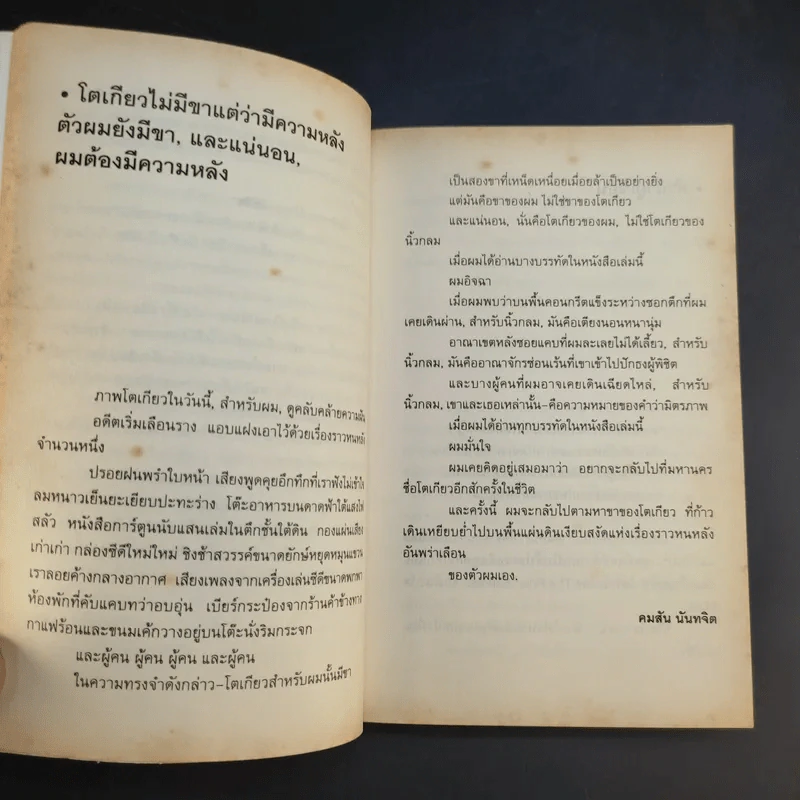 • โตเกียวไม่มีขาแต่ว่ามีความหลัง
ตัวผมยังมีขา, และแน่นอน,
ผมต้องมีความหลัง
ภาพโตเกียวในวันนี้, สำหรับผม, ดูคลับคล้ายความฝัน
อดีตเริ่มเลือนราง แอบแฝงเอาไว้ด้วยเรื่องราวหนหลัง
จำนวนหนึ่ง
ปรอยฝนพรำใบหน้า เสียงพูดคุยอึกทึกที่เราฟังไม่เข้าใจ
ลมหนาวเย็นยะเยียบปะทะร่าง โต๊ะอาหารบนดาดฟ้าใต้แสงไฟ
สลัว หนังสือการ์ตูนนับแสนเล่มในตึกชั้นใต้ดิน กองแผ่นเสียง
เก่าเก่า กล่องซีดีใหม่ใหม่ ชิงช้าสวรรค์ขนาดยักษ์หยุดหมุนแขวน
เราลอยค้างกลางอากาศ เสียงเพลงจากเครื่องเล่นซีดีขนาดพกพา
ห้องพักที่คับแคบทว่าอบอุ่น เบียร์กระป๋องจากร้านค้าข้างทาง
กาแฟร้อนและขนมเค้กวางอยู่บนโต๊ะนั่งริมกระจก
และผู้คน ผู้คน ผู้คน และผู้คน
ในความทรงจำดังกล่าว–โตเกียวสำหรับผมนั้นมีขา
เป็นสองขาที่เหน็ดเหนื่อยเมื่อยล้าเป็นอย่างยิ่ง
แต่มันคือขาของผม ไม่ใช่ขาของโตเกียว
และแน่นอน, นั่นคือโตเกียวของผม, ไม่ใช่โตเกียวของ
นิ้วกลม
เมื่อผมได้อ่านบางบรรทัดในหนังสือเล่มนี้
ผมอิจฉา
เมื่อผมพบว่าบนพื้นคอนกรีตแข็งระหว่างซอกตึกที่ผม
เคยเดินผ่าน, สำหรับนิ้วกลม, มันคือเตียงนอนหนานุ่ม
อาณาเขตหลังซอยแคบที่ผมละเลยไม่ได้เลี้ยว, สำหรับ
นิ้วกลม, มันคืออาณาจักรซ่อนเร้นที่เขาเข้าไปปักธงผู้พิชิต
และบางผู้คนที่ผมอาจเคยเดินเฉียดไหล่, สำหรับ
นิ้วกลม, เขาและเธอเหล่านั้น–คือความหมายของคำว่ามิตรภาพ
เมื่อผมได้อ่านทุกบรรทัดในหนังสือเล่มนี้
ผมมั่นใจ
ผมเคยคิดอยู่เสมอมาว่า อยากจะกลับไปที่มหานคร
ชื่อโตเกียวอีกสักครั้งในชีวิต
และครั้งนี้ ผมจะกลับไปตามหาขาของโตเกียว ที่ก้าว
เดินเหยียบย่ำไปบนพื้นแผ่นดินเงียบสงัดแห่งเรื่องราวหนหลัง
อันพร่าเลือน
ของตัวผมเอง.
คมสัน นันทจิต